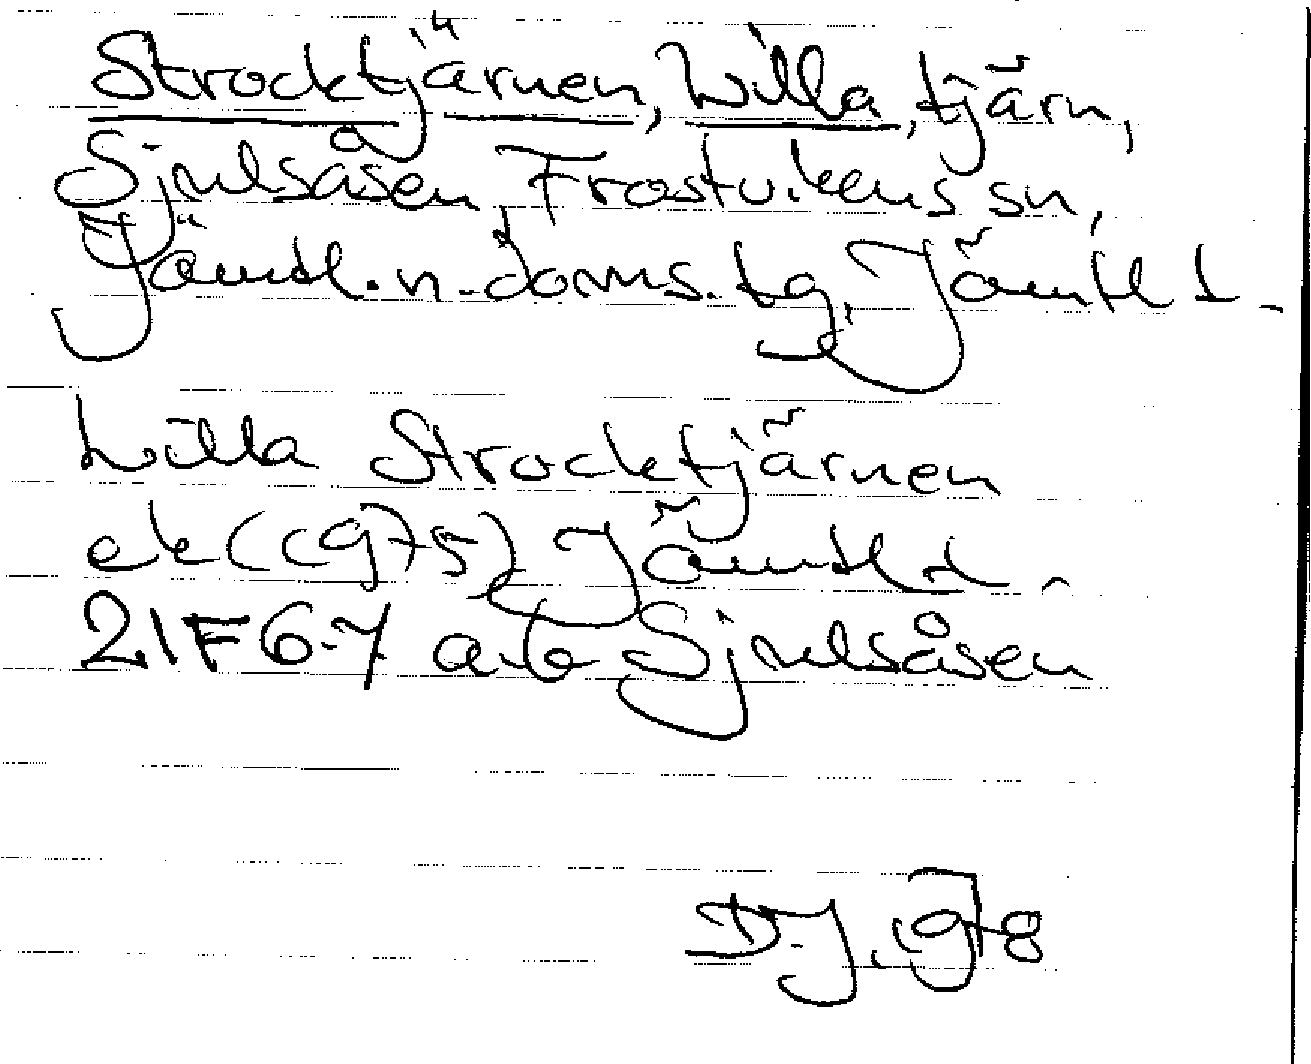 Strocktjärnen, Lilla, tjärn,
Sjulsåsen, Frostvikens sn,
Jämtl. n. doms. tg, Jämtl l.
Lilla Strocktjärnen
ek (1975) Jämtl l.
21F6-7 a-b Sjulsåsen
D.J. 1978